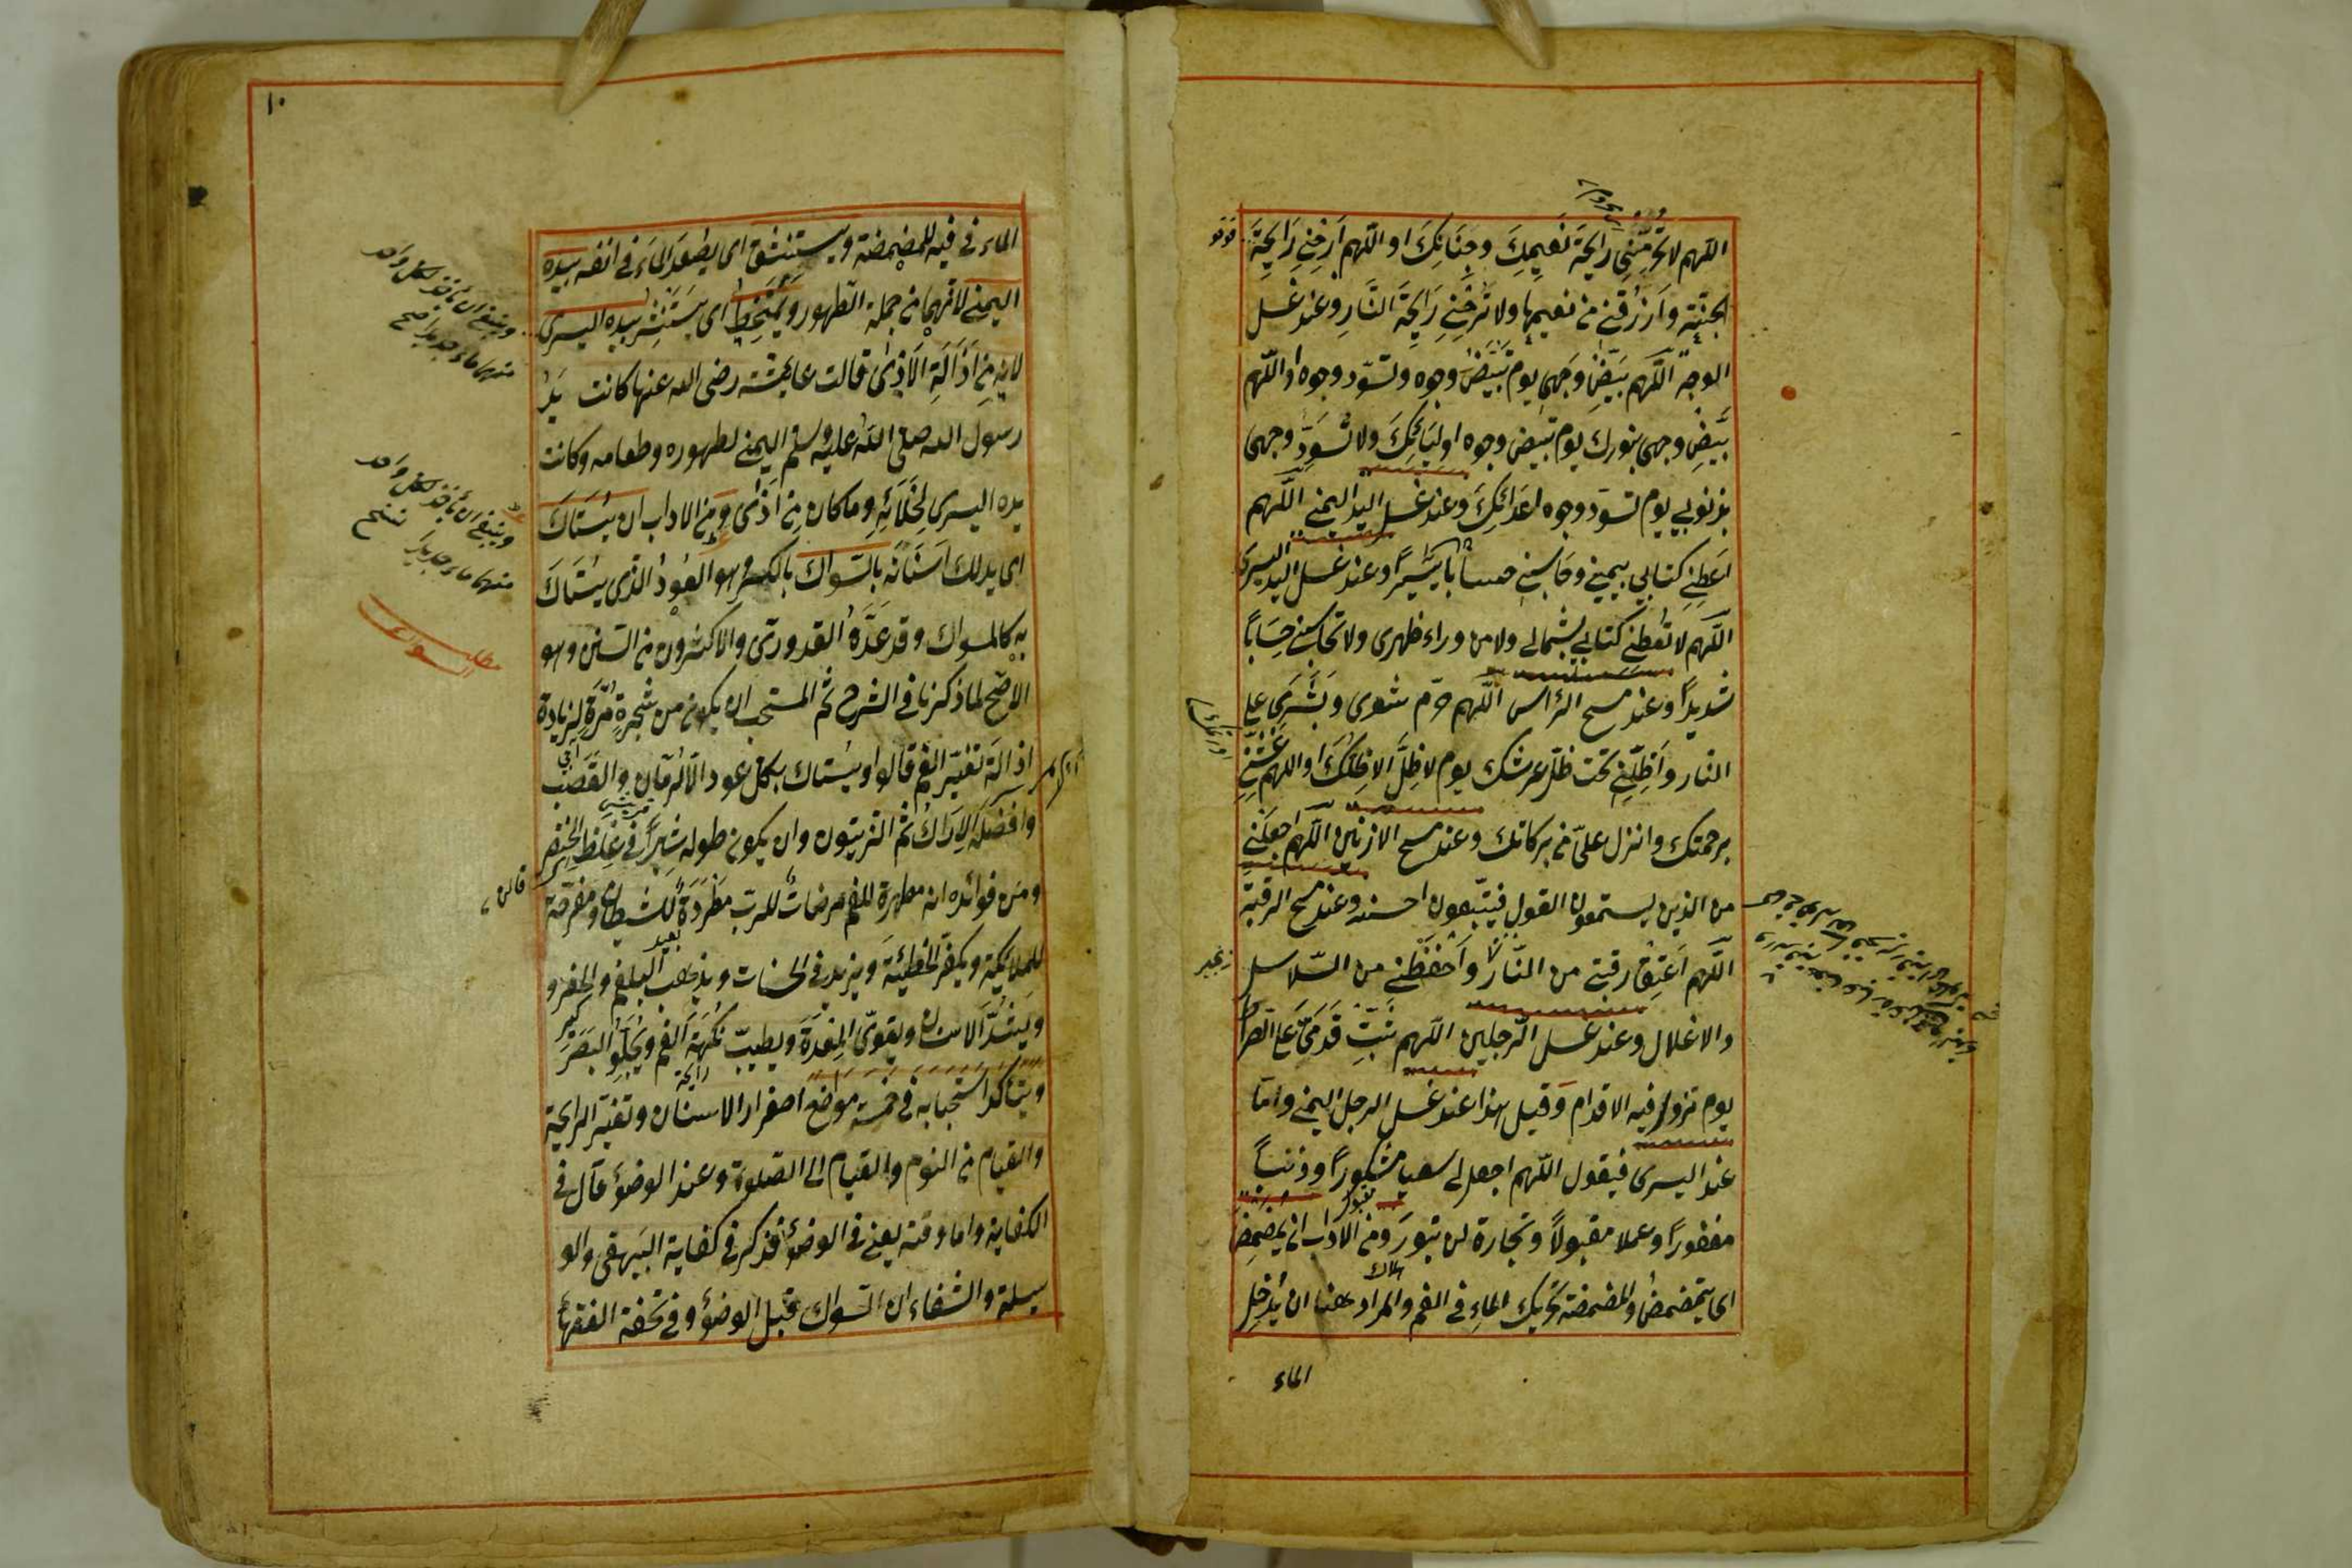 اللهم لا تحرمني رايحة نعيمك وجنانك او اللهم ارحني رايحة
الجنة وارزقني من نعيمها ولا ترحني رايحة النار وعند غسل
الوجه اللهم بيض وجهي يوم تبيض وجوه وتسود وجوه او اللهم
بيض وجهي بنورك يوم تبيض وجوه اوليائك ولا تسود وجهي
بذنوبي يوم تسود وجوه اعدائك وعند غسل اليد اليمنى اللهم
اعطني كتابي بيميني وحاسبني حسابا يسيرا وعند غسل اليد اليسرى
اللهم لا تعطني كتابي بشمالي ولا من وراء ظهري ولا تحاسبني حسابا
شديدا وعند مسح الراس اللهم حرم شعري وبشري على
النار واظلني تحت ظل عرشك يوم لا ظل الا ظلك او اللهم غشني
برحمتك وانزل علي من بركاتك وعند مسح الاذنين اللهم اجعلني
من الذين يستمعون القول فيتبعون احسنه وعند مسح الرقبة
اللهم اعتق رقبتي من النار واحفظني من السلاسل
والاغلال وعند غسل الرجلين اللهم ثبت قدمي على الصراط
يوم تزول فيه الاقدام وقيل هذا عند غسل الرجل اليمنى واما
عند اليسرى فيقول اللهم اجعل لي سعيا مشكورا وذنبا
مغفورا وعملا مقبولا وتجارة لن تبور ومن الاداب ان يمضمض
اي يتمضمض والمضمضة تحريك الماء في الفم والمراد هنا ان يدخل
الماء
١٠
الماء في فيه للمضمضة ويستنشق اي يصعد الماء في انفه بيده
اليمنى لانهما من جملة الطهور ويمتخط اي يستنثر بيده اليسرى
لانه من اذالة الاذى قالت عايشة رضى الله عنها كانت يد
رسول الله صلى الله عليه وسلم اليمنى لطهوره وطعامه وكانت
يده اليسرى لخلائه وما كان من اذى ومن الاداب ان يستاك
اي يدلك اسنانه بالسواك بالكسر وهو العود الذي يستاك
به كالمسواك وقد عده القدوري والاكثرون من السنن وهو
الاصح لما ذكرنا في الشرح ثم المستحب ان يكون من شجرة مرة لزيادة
اذالة تغير الفم قالوا ويستاك بكل عود الا الرمان والقصب
وافضله الاراك ثم الزيتون وان يكون طوله شبرا في غلظ الخنصر
ومن فوائده انه مطهرة للفم مرضات للرب مطردة للشيطان ومفرحة
للملايكة ويكفر الخطيئة ويزيد في الحسنات ويذهب البلغم والحفر و
ويشد الاسنان ويقوي المعدة ويطيب نكهة الفم ويجلو البصر
ويتاكد استحبابه في خمسة مواضع اصفرار الاسنان وتغير الرايحة
والقيام من النوم والقيام الى الصلوة وعند الوضوء قال في
الكفاية واما وقته يعني في الوضوء فذكر في كفاية البيهقي والو
سيلة والشفاء ان السواك قبل الوضوء وفي تحفة الفقهاء
وينبغي ان ياخذ لكل واحد
منهما ماء جديدا صح
وينبغي ان ياخذ لكل واحد
منهما ماء جديدا